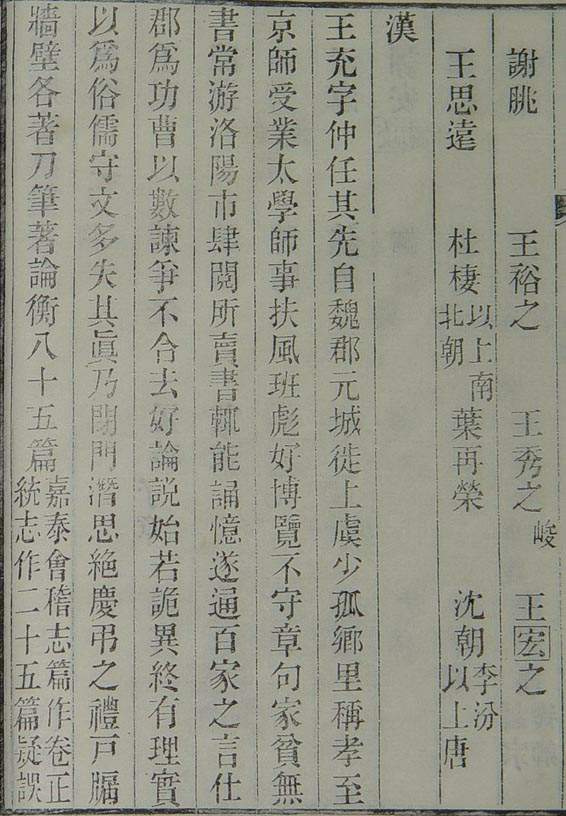 謝朓　王裕之　王秀之峻　王宏之
王思遠　杜棲以上南北朝　葉再榮　沈朝李汾以上唐
漢
王充字仲任其先自魏郡元城徙上虞少孤鄉里稱孝至
京師受業太學師事扶風班彪好博覽不守章句家貧無
書常游洛陽市肆閱所賣書輒能誦憶遂通百家之言仕
郡爲功曹以數諫爭不合去好論說始若詭異終有理實
以爲俗儒守文多失其眞乃閉門潛思絕慶弔之禮戶牖
牆壁各著刀筆著論衡八十五篇嘉泰會稽志篇作卷正統志作二十五篇疑誤